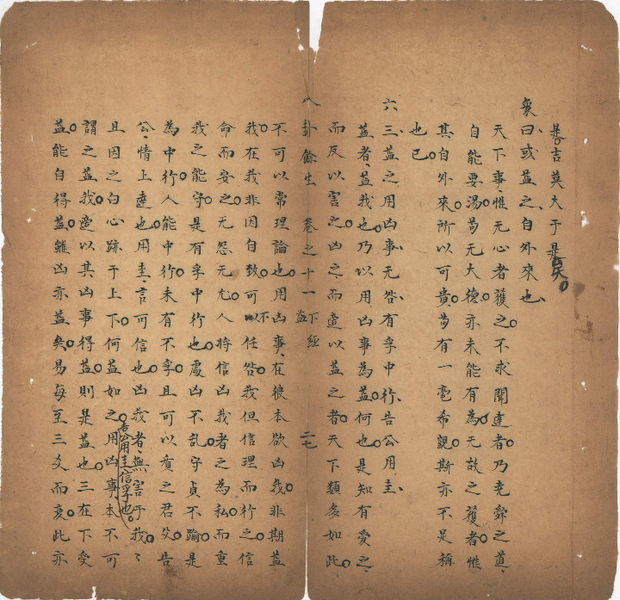 是吉莫大于是矣
象曰或益之自外來也
天下事惟无心者獲之不求聞達者乃堯舜之道
自能要湯苟无大德亦未能有為无故之獲者惟
其自外來所以可貴苟有一毫希覬斯亦不足稱
也已
六三益之用凶事无咎有孚中行告公用圭
益者益我也乃以用凶事為益何也是知有愛之
而反以害之凶之而遽以益之者天下類多如此
八卦餘生 卷之十一 下經 益 二七
不可以常理論也用凶事在彼本欲凶我非期益
我在我非因自致可不任咎我但信理而行之信
命而安之无怨无尤人將信凶我者之為私而重
我之能守是有孚中行也處凶不亂守貞不踰是
為中行人能中行未有不孚且可以質之君父告
公情上達也用圭言可信也凶我者無害于我
且因之白心跡于上下何益如之告公用圭信孚也用凶事本不可
謂之益我遽以其凶事得益則是益也三在下受
益能自得益雖凶亦益矣易每至三爻而變此亦